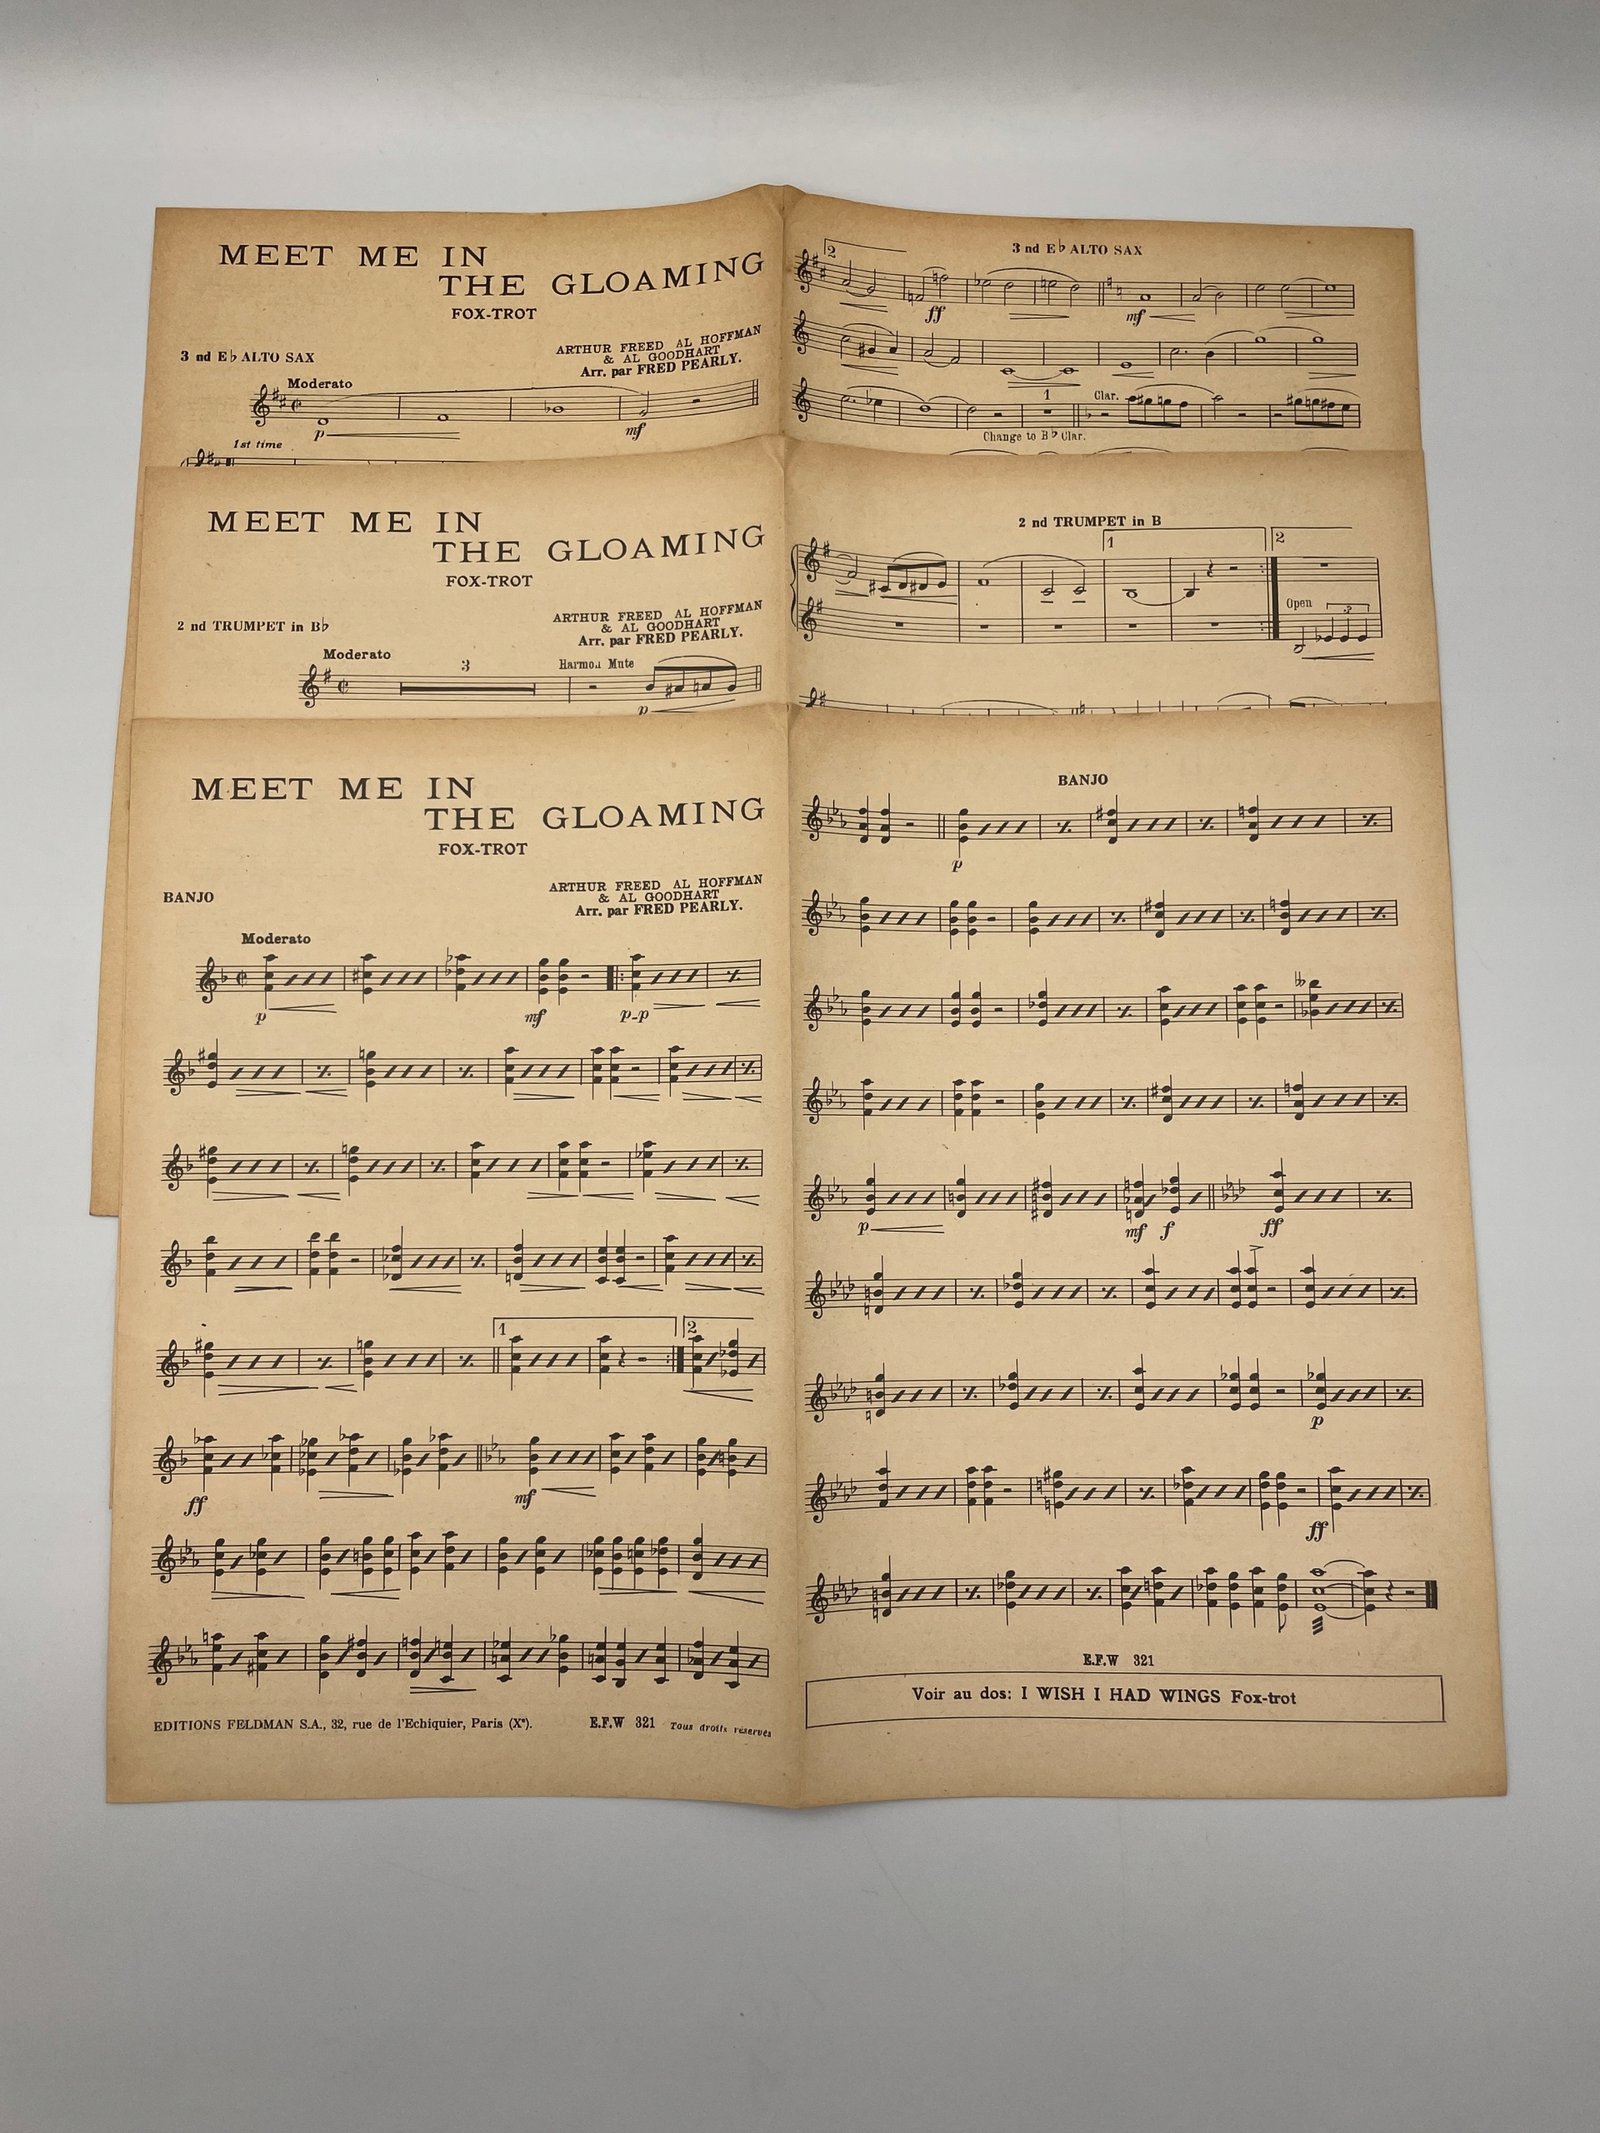 MEET ME IN
THE GLOAMING
FOX-TROT
3 nd E♭ ALTO SAX
ARTHUR FREED AL HOFFMAN
& AL GOODHART
Arr. par FRED PEARLY.
Moderato
p
mf
1st time
3 nd E♭ ALTO SAX
2
ff
mf
1
Clar.
Change to B♭ Clar.
MEET ME IN
THE GLOAMING
FOX-TROT
2 nd TRUMPET in B♭
ARTHUR FREED AL HOFFMAN
& AL GOODHART
Arr. par FRED PEARLY.
Moderato
3
Harmon Mute
p
2 nd TRUMPET in B
1
2
Open
3
MEET ME IN
THE GLOAMING
FOX-TROT
BANJO
ARTHUR FREED AL HOFFMAN
& AL GOODHART
Arr. par FRED PEARLY.
Moderato
p
mf
p-p
1
2
ff
mf
EDITIONS FELDMAN S.A., 32, rue de l'Echiquier, Paris (Xe).
E.F.W 321
Tous droits réservés
BANJO
p
p
mf
f
ff
p
ff
E.F.W 321
Voir au dos: I WISH I HAD WINGS Fox-trot